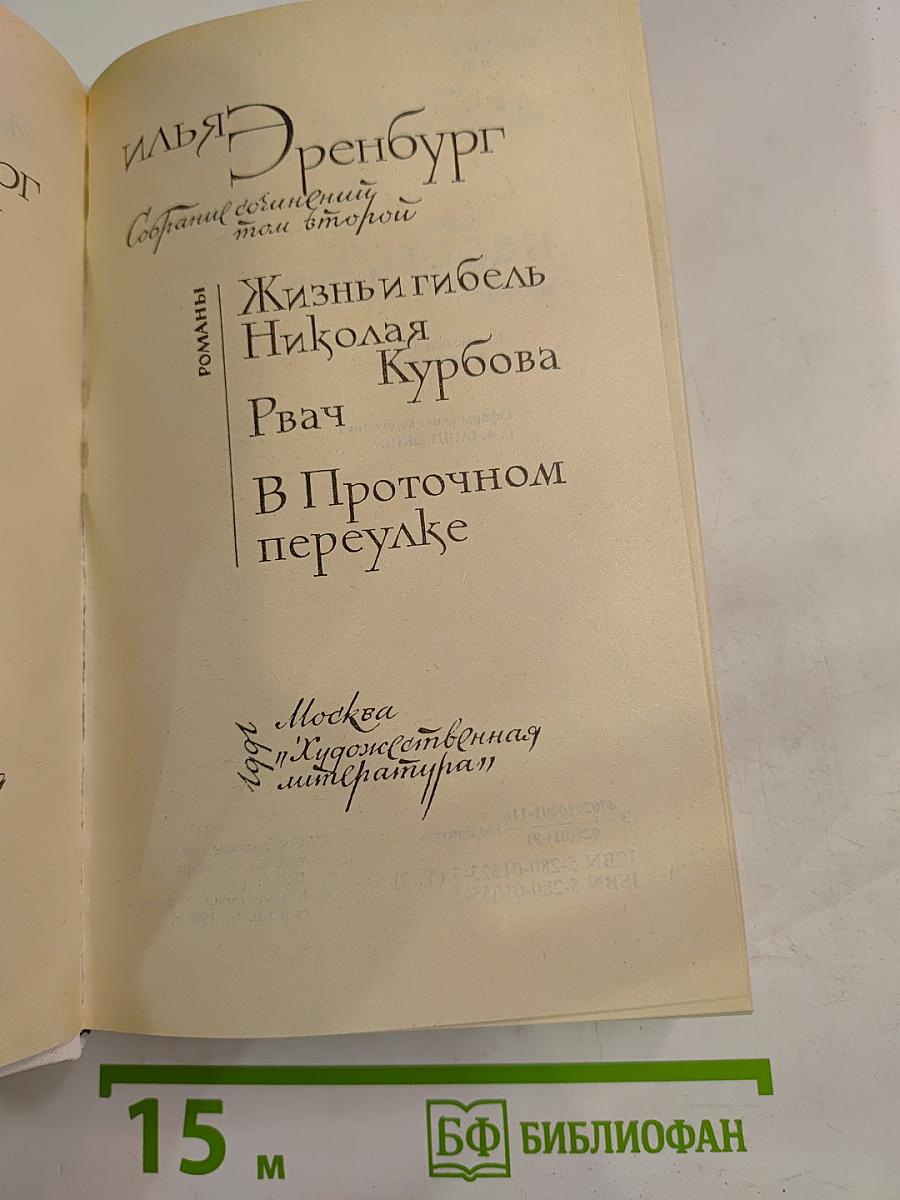 илья Эренбург
Собрание сочинений
том второй
РОМАНЫ
Жизнь и гибель
Николая
Курбова
Рвач
В Проточном
переулке
1991
Москва
„Художественная
литература"
ISBN 5-280-01623-3 (Т. 2)
15 м
БФ БИБЛИОФАН